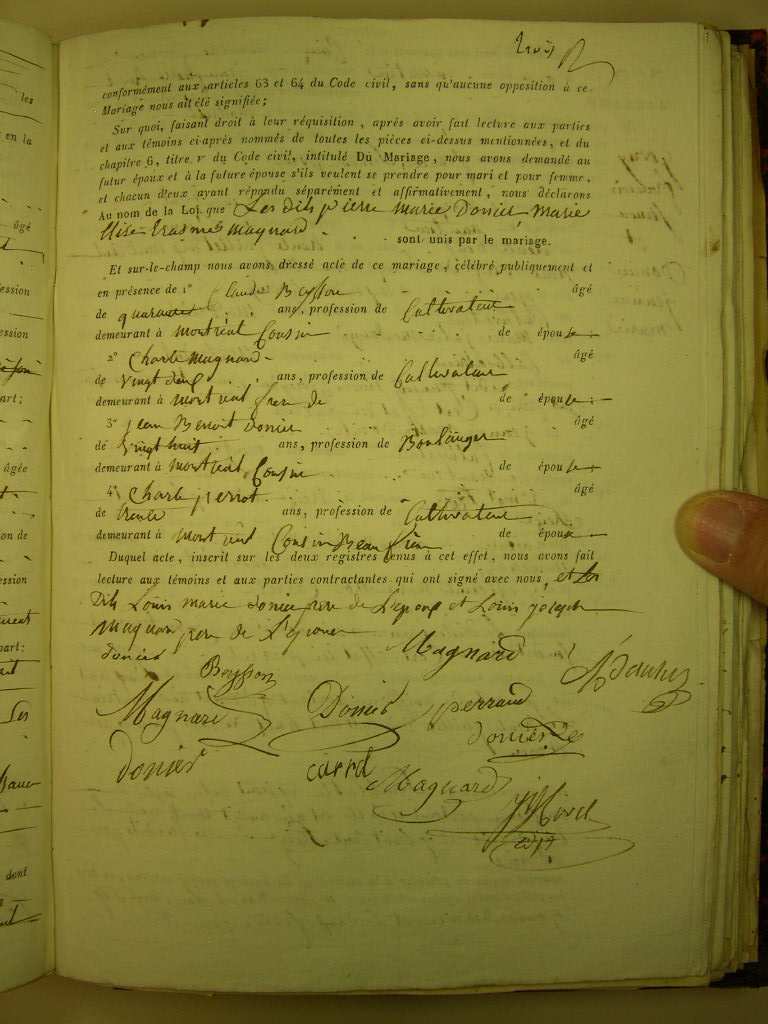 conformément aux articles 63 et 64 du Code civil, sans qu'aucune opposition à ce
Mariage nous ait été signifiée;
Sur quoi, faisant droit à leur réquisition, après avoir fait lecture aux parties
et aux témoins ci-après nommés de toutes les pièces ci-dessus mentionnées, et du
chapitre 6, titre v du Code civil, intitulé Du Mariage, nous avons demandé au
futur époux et à la future épouse s'ils veulent se prendre pour mari et pour femme,
et chacun d'eux ayant répondu séparément et affirmativement, nous déclarons
Au nom de la Loi que Les dits pierre marie Donier, marie
Elise Erasmes magnard sont unis par le mariage.
Et sur-le-champ nous avons dressé acte de ce mariage, célébré publiquement et
en présence de 1° Claude Beysson âgé
de quarante ans, profession de Cultivateur
demeurant à montreal Cousin de épouse
2° Charle magnard âgé
de vingt deux ans, profession de Cultivateur
demeurant à montreal frere de de épouse
3° jean Benoit donier âgé
de vingt huit ans, profession de Boulanger
demeurant à montreal Cousin de épouse
4° Charle perrot âgé
de trente ans, profession de Cultivateur
demeurant à montreal Cousin Beau frere de épouse
Duquel acte, inscrit sur les deux registres tenus à cet effet, nous avons fait
lecture aux témoins et aux parties contractantes qui ont signé avec nous, et les
Dits Louis marie donier pere de L'epoux et Louis joseph
magnard pere de L'epouse
donier Magnard
Beysson
Magnard Donier perraud
donier
donier carrd Magnard